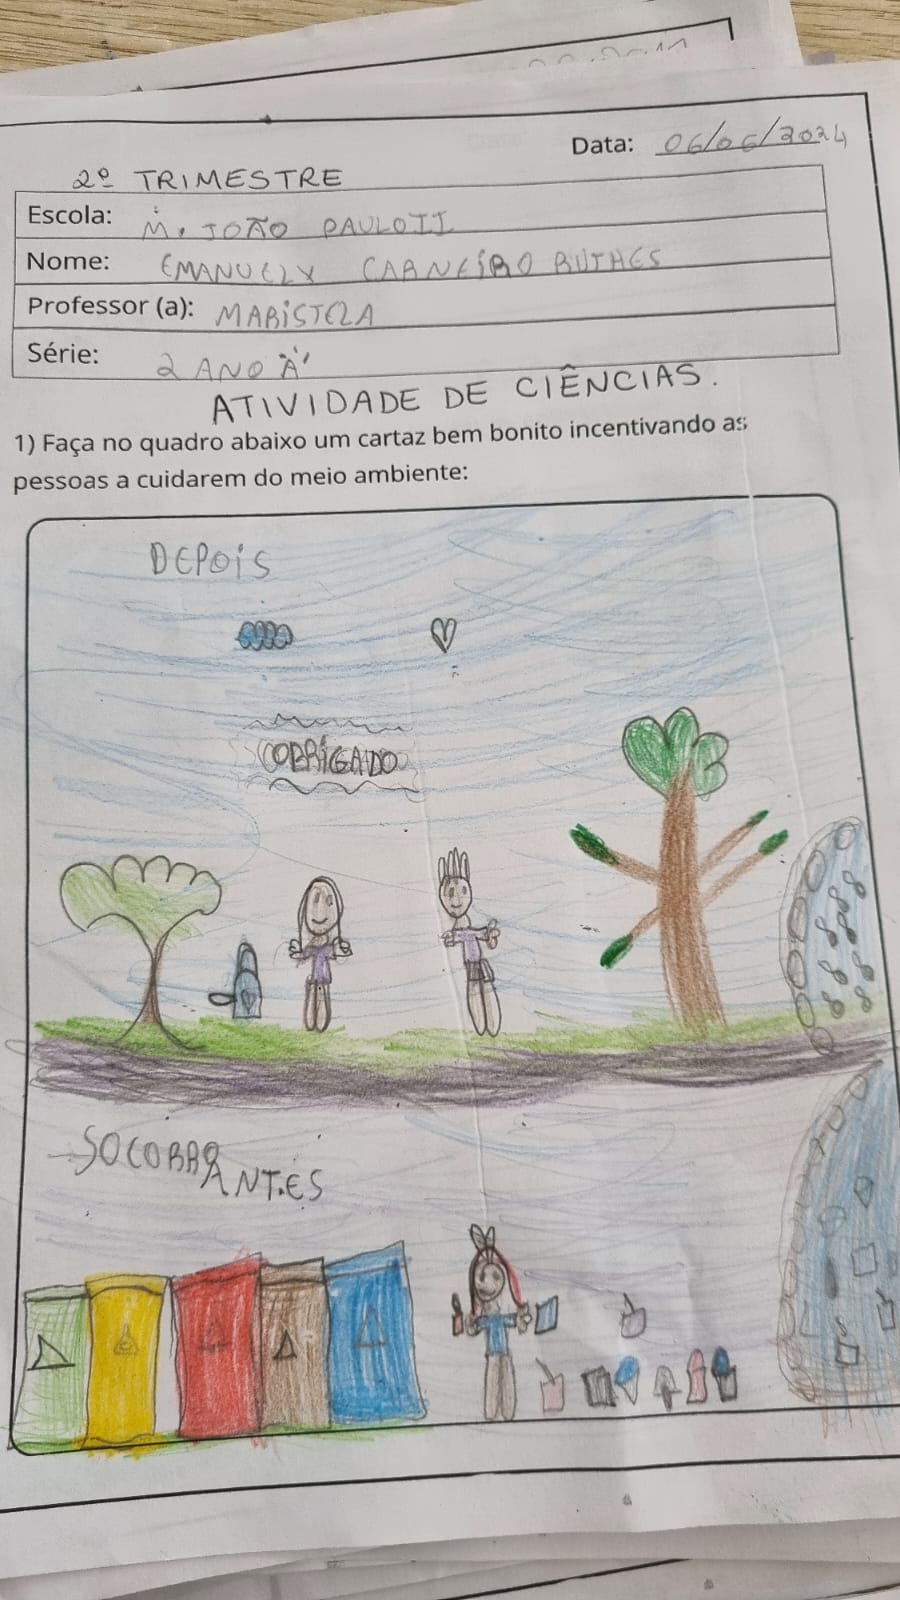 Data: 06/06/2024
2º TRIMESTRE
Escola: M. JOÃO PAULO II
Nome: EMANUELY CARNEIRO
Professor (a): MARISTELA
Série: 2 ANO "A"
ATIVIDADE DE CIÊNCIAS.
1) Faça no quadro abaixo um cartaz bem bonito incentivando as
pessoas a cuidarem do meio ambiente:
DEPOIS
OBRIGADO
SOCORRO
ANTES